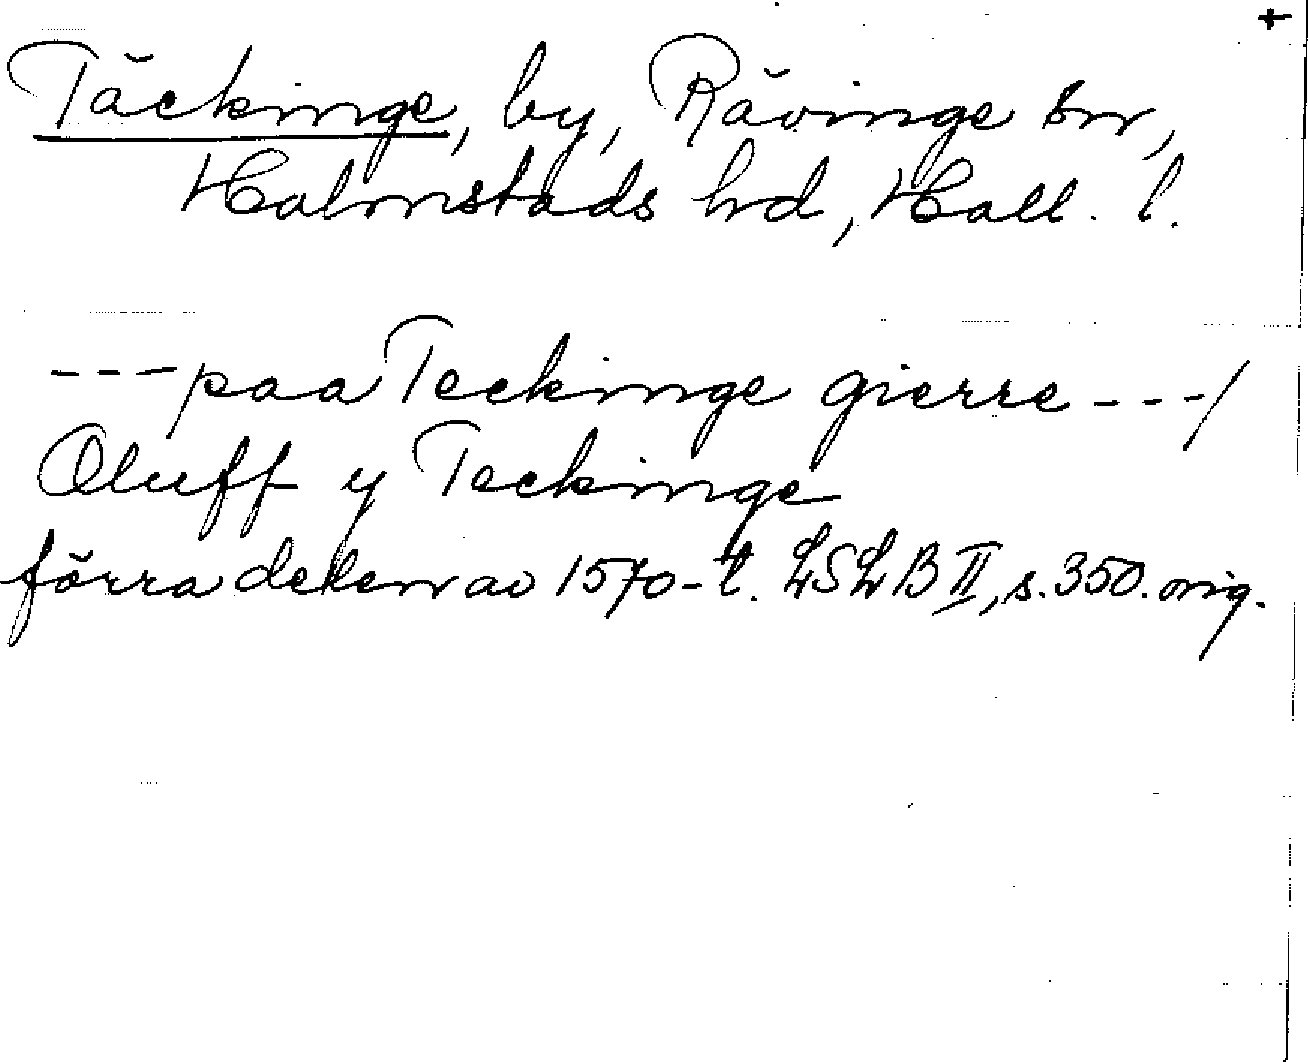 +
Täckinge, by, Rävinge sn,
Halmstads hd, Hall. l.
---paa Teckinge gierre---/
Oluff y Teckinge
förra delen av 1570-t. LSLB II, s. 350. orig.